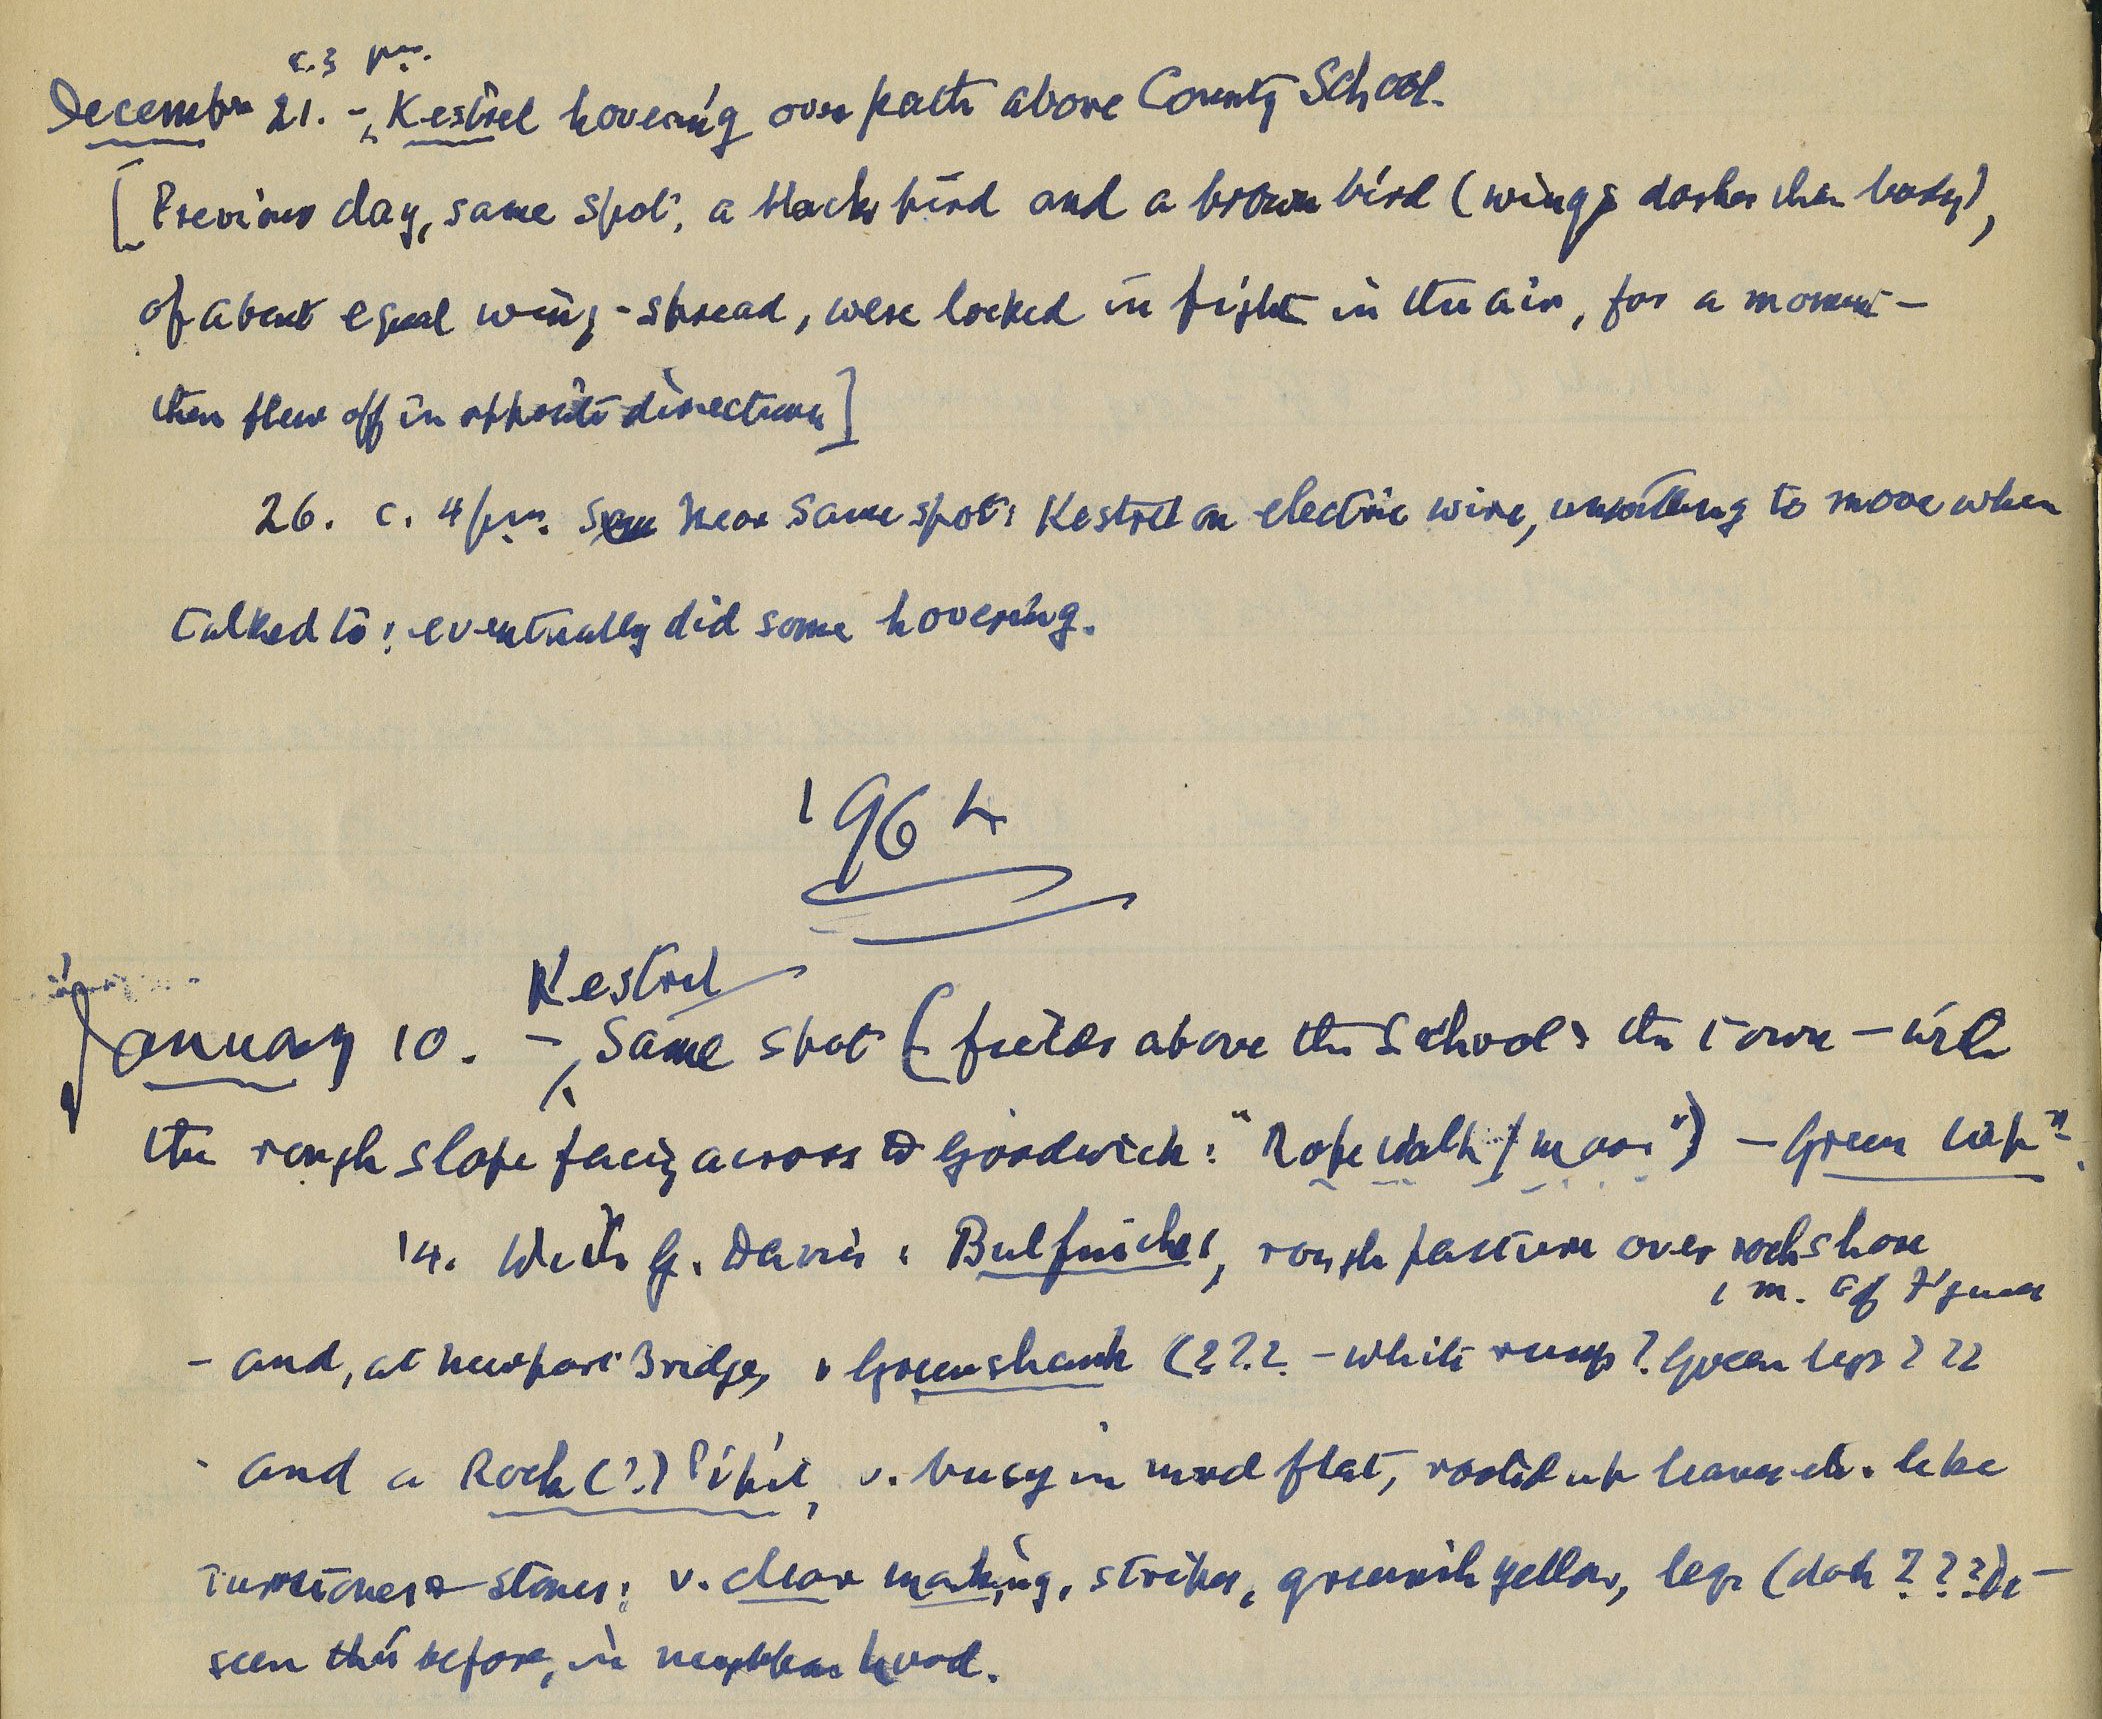 c. 3 p.m.
December 21. - Kestrel hovering over path above County School.
[Previous day, same spot, a black bird and a brown bird (wings darker than body),
of about equal wing-spread, were locked in fight in the air, for a moment -
then flew off in opposite directions]
26. c. 4 p.m. Near same spot: Kestrel on electric wire, unwilling to move when
talked to: eventually did some hovering.
1964
Kestrel
January 10. - Same spot (fields above the School & the Town - with
the rough slope facing across to Goodwick: "Rope Walk / moor") - Green Wp.
14. With G. Davies: Bulfinches, rough pasture over rock shore
1 m. of F'guard
- and, at Newport Bridge, Greenshank (??? - white rump? Green legs ???
- and a Rock (?) Pipit, v. busy in mud flat, rooted up leaves etc. like
Turnstones & stones: v. clear marking, stripes, greenish yellow, legs (dark ???)
seen this before, in neighbourhood.